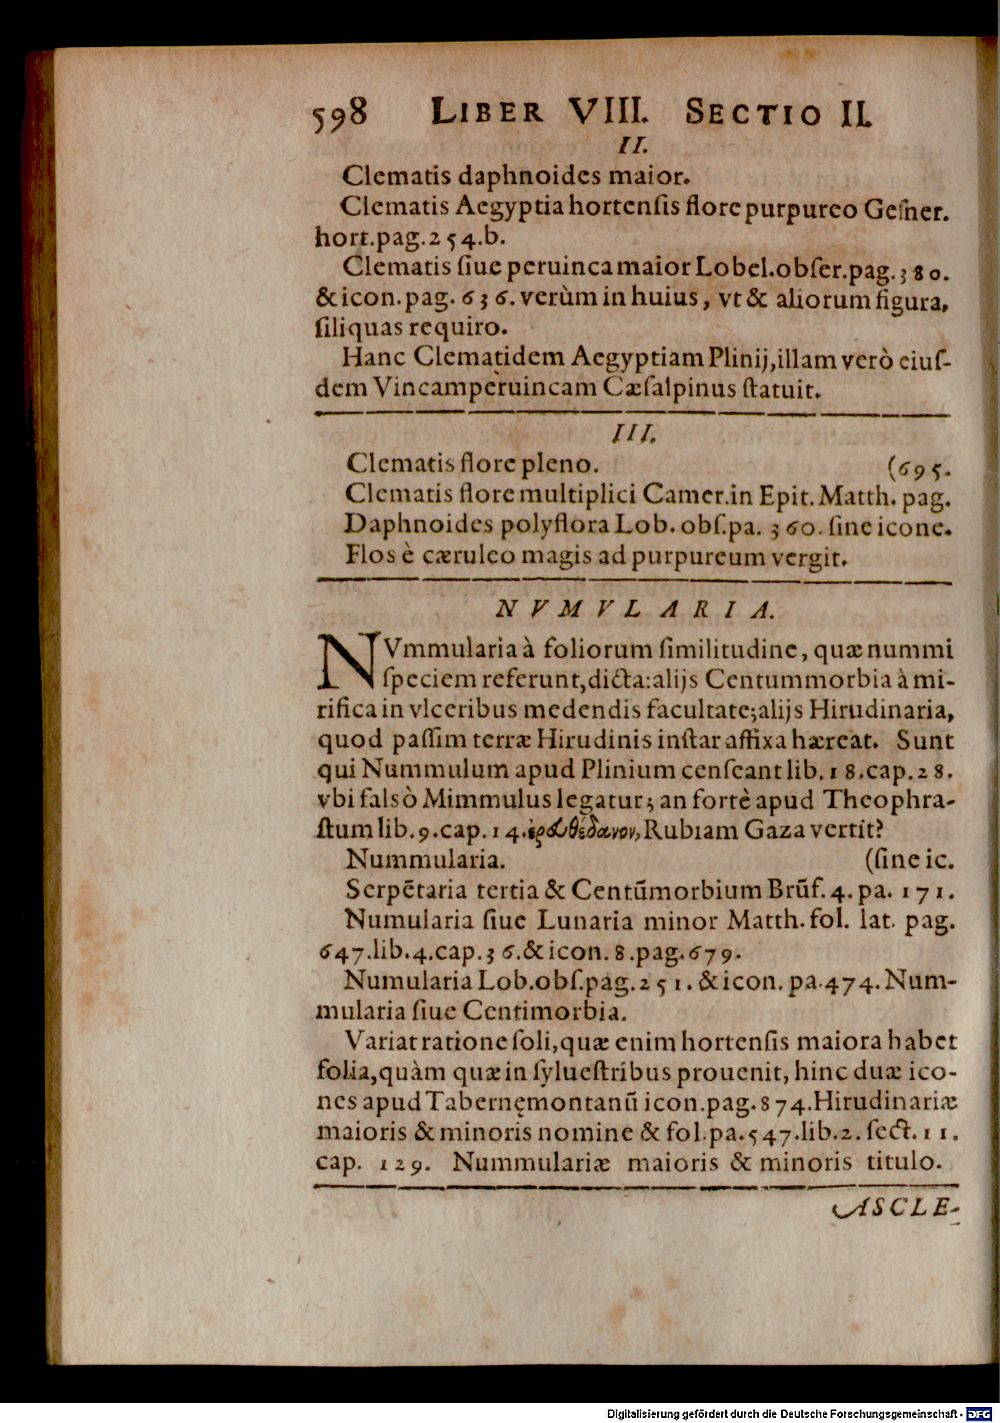 598 LIBER VIII. SECTIO II.
II.
Clematis daphnoides maior.
Clematis Aegyptia hortenſis flore purpureo Geſner.
hort.pag.254.b.
Clematis ſiue peruinca maior Lobel.obſer.pag.380.
& icon.pag.636.verùm in huius, vt & aliorum figura,
ſiliquas requiro.
Hanc Clematidem Aegyptiam Plinij,illam verò eiuſ-
dem Vincamperuincam Cæſalpinus ſtatuit.
III.
Clematis flore pleno. (695.
Clematis flore multiplici Camer.in Epit. Matth. pag.
Daphnoides polyflora Lob. obſ.pa. 360. ſine icone.
Flos è cæruleo magis ad purpureum vergit.
NVMVLARIA.
NVmmularia à foliorum ſimilitudine, quæ nummi
ſpeciem referunt,dicta:alijs Centummorbia à mi-
rifica in vlceribus medendis facultate;alijs Hirudinaria,
quod paſſim terræ Hirudinis inſtar affixa hæreat. Sunt
qui Nummulum apud Plinium cenſeant lib.18.cap.28.
vbi falsò Mimmulus legatur; an fortè apud Theophra-
ſtum lib.9.cap.14. Rubiam Gaza vertit?
Nummularia. (ſine ic.
Serpẽtaria tertia & Centũmorbium Brũf.4.pa. 171.
Numularia ſiue Lunaria minor Matth.fol. lat. pag.
647.lib.4.cap.36.& icon.8.pag.679.
Numularia Lob.obſ.pag.251.& icon.pa.474.Num-
mularia ſiue Centimorbia.
Variat ratione ſoli,quæ enim hortenſis maiora habet
folia,quàm quæ in ſylueſtribus prouenit, hinc duæ ico-
nes apud Tabernęmontanũ icon.pag.874.Hirudinariæ
maioris & minoris nomine & fol.pa.547.lib.2.ſect.11.
cap. 129. Nummulariæ maioris & minoris titulo.
ASCLE-
Digitalisierung gefördert durch die Deutsche Forschungsgemeinschaft - DFG